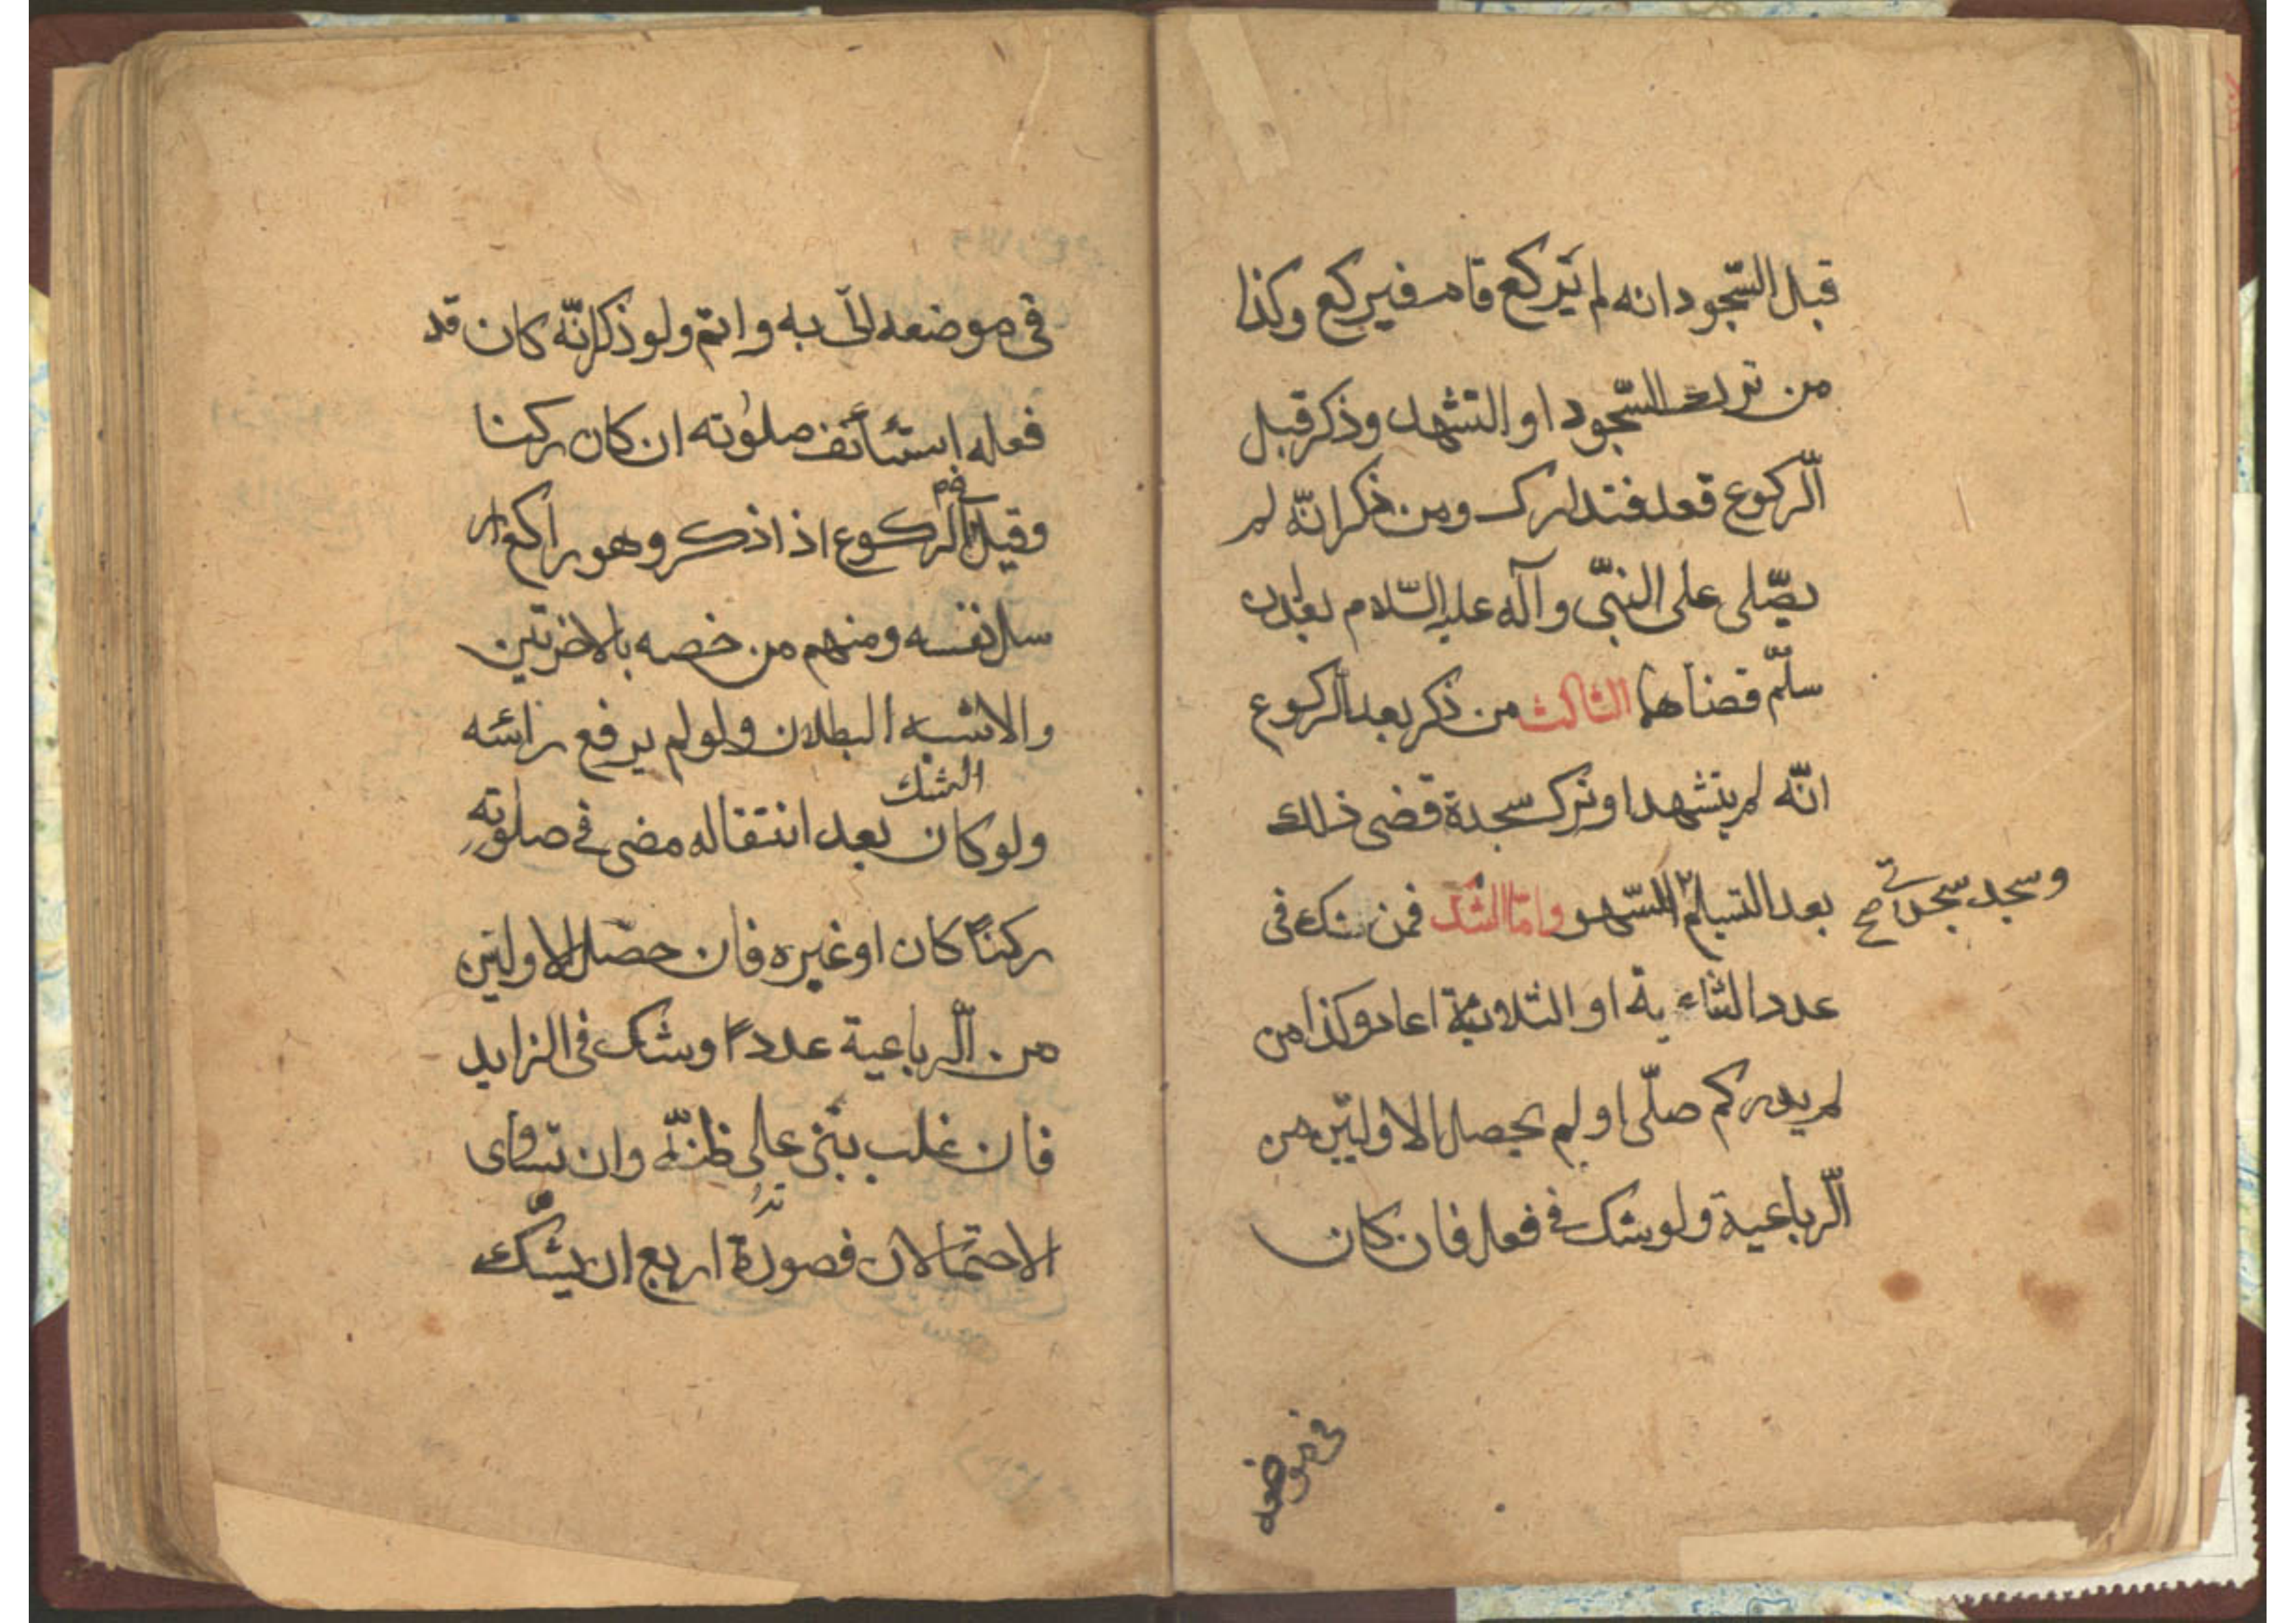 قبل السّجود انه لم يركع قام فيركع وكذا
من ترك السّجود او التشهد وذكر قبل
الّركوع قعد فتدارك ومن ذكر انّه لم
يصّلى على النبّى وآله عليه السّلام بعد ان
سلّم قضاهما الثالث من ذكر بعد الركوع
انّه لم يتشهد او ترك سجدة قضى ذلك
وسجد سجدتى صح
بعد التسليم السّهو وامّا الشك فمن شك فى
عدد الثنائية او الثلاثية اعاد وكذا من
لم يدر كم صلّى او لم يحصل الاوليّن من
الّرباعية ولو شك فى فعل فان كان
فى موضعه
فى موضعه اتى به واتم ولو ذكر انّه كان قد
فعله استأنف صلوته ان كان ركنا
وقيل فى الركوع اذا ذكر وهو راكع ار
سل نفسه ومنهم من خصه بالاخرتين
والاشبه البطلان ولو لم يرفع رائسه
الشك
ولو كان بعد انتقاله مضى فى صلوته
ركناً كان او غيره فان حصّل الاوليّن
من الّرباعية عدداً وشك فى الزايد
فان غلب بنى على ظنّه وان تساوى
الاحتمالان فصورة اربع ان يشّك